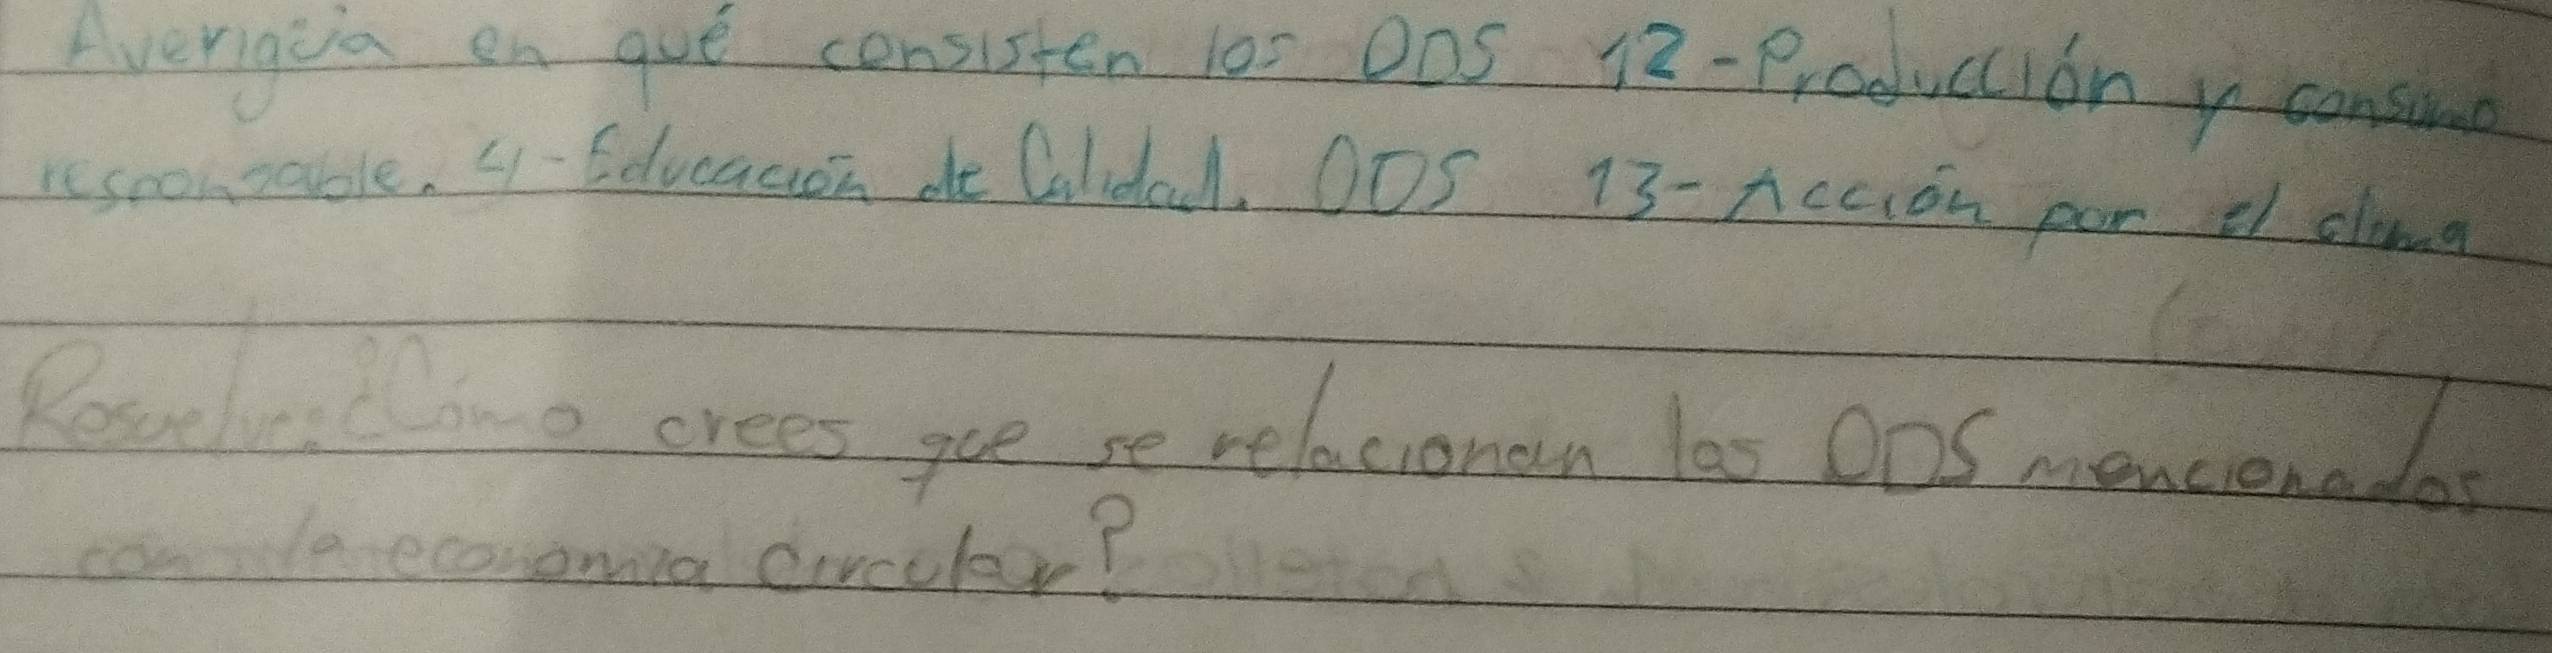 Averigüa en qué consisten los ODS 12-Producción y consumo
responsable. 4-Educación de Calidad. ODS 13-Acción por el clima
Resuelve: ¿Cómo crees que se relacionan los ODS mencionados
con la economia circular?